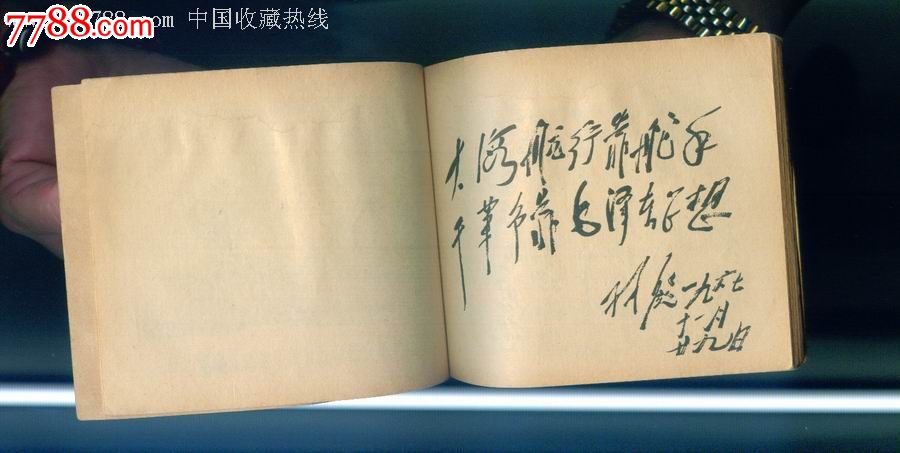 7788.com 中国收藏热线
7788.com
大海航行靠舵手
干革命靠毛泽东思想
林彪 一九六七
十一月
廿九日